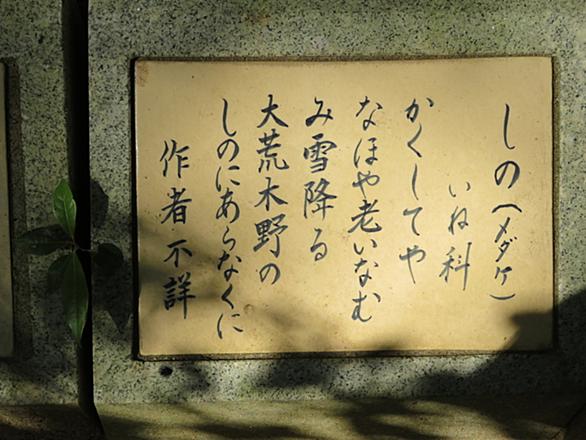 しの（メダケ）
いね科
かくしてや
なほや老いなむ
み雪降る
大荒木野の
しのにあらなくに
作者不詳